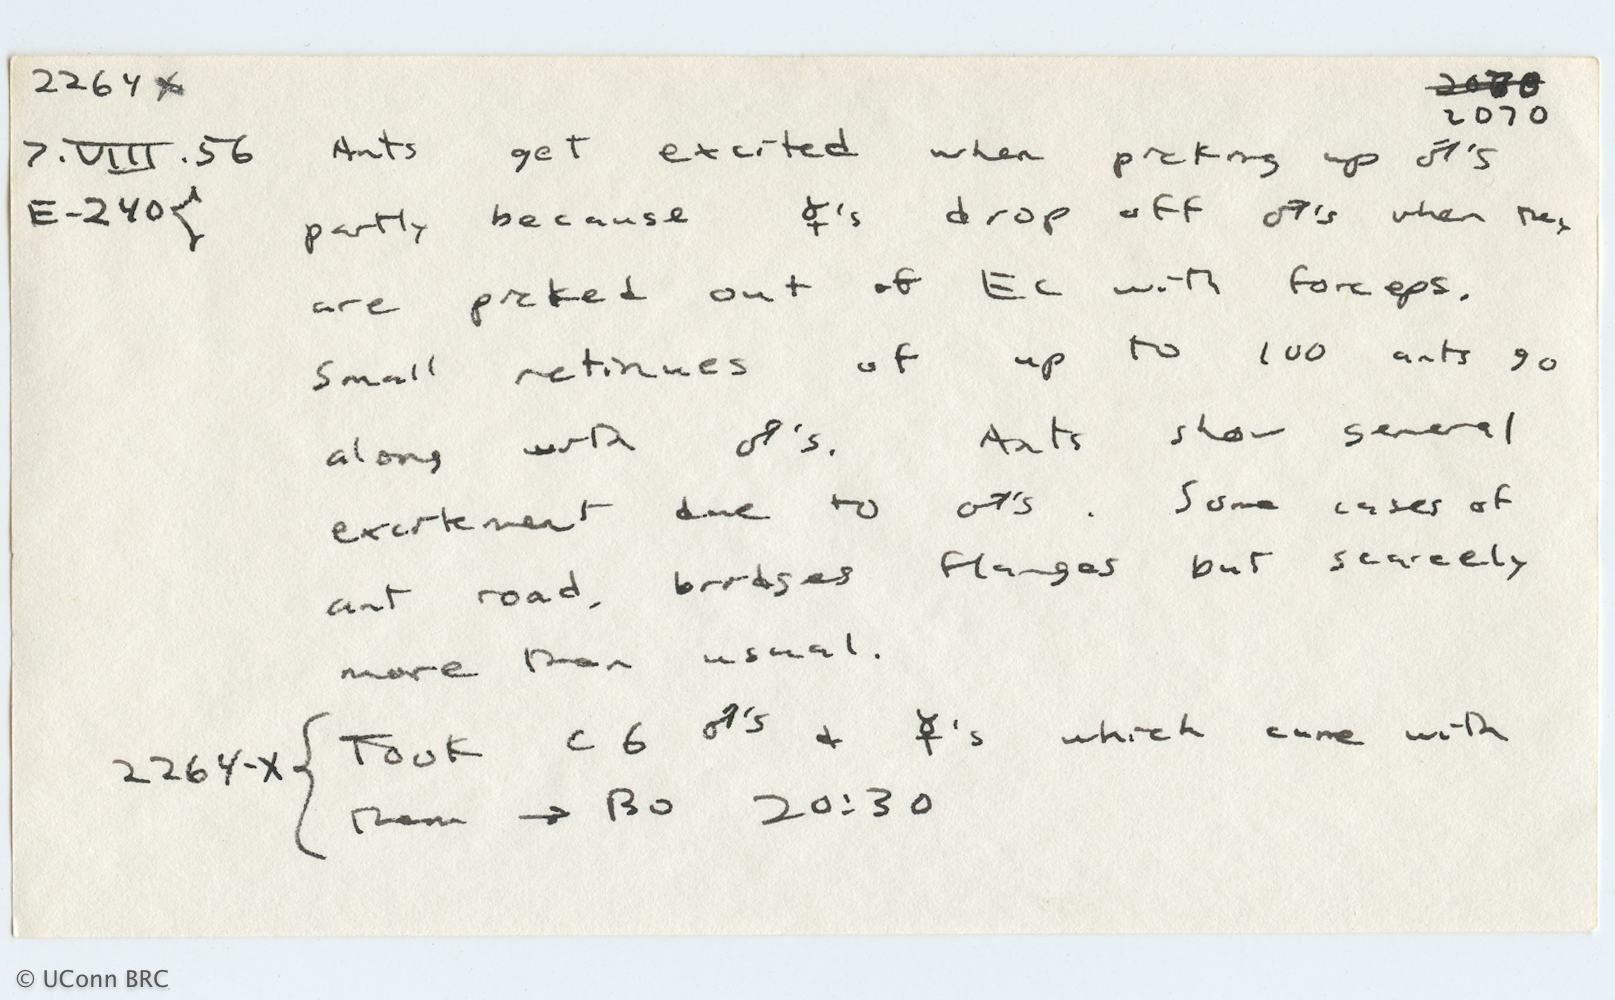 2264 x
2070
7.VIII.56 Ants get excited when picking up ♂'s
E-240{ partly because ☿'s drop off ♂'s when they
are picked out of Ec with forceps.
Small retinues of up to 100 ants go
along with ♂'s. Ants show general
excitement due to ♂'s. Some cases of
ant road, bridges flanges but scarcely
more than usual.
2264-X{ Took c 6 ♂'s & ☿'s which came with
them → BO 20:30
© UConn BRC